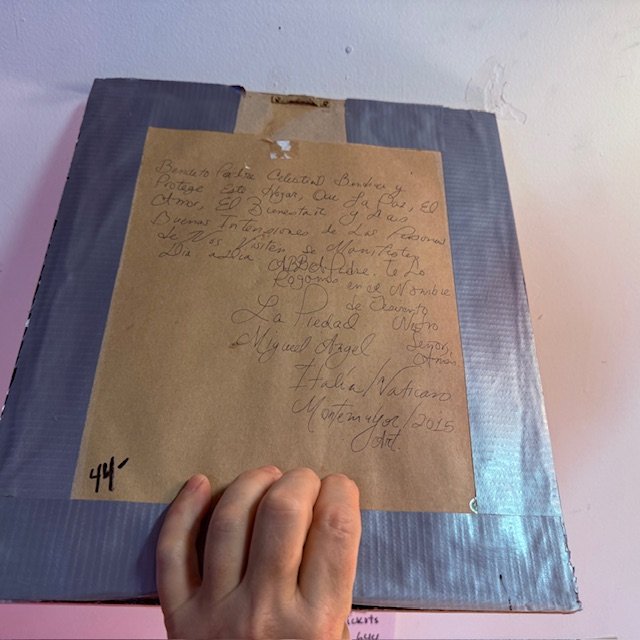 Bendito Padre Celestial Bendice y
Protege Este Hogar, Que La Paz, El
Amor, El Bienestar y Las
Buenas Intenciones de Las Personas
Nos Visiten Se Manifiesten
Dia a Dia
ABBA Padre te Lo
Rogamos en el Nombre
de
La Piedad
Miguel Angel
Señor,
Italia/Vaticano
Montemayor/2015
Art.
44-